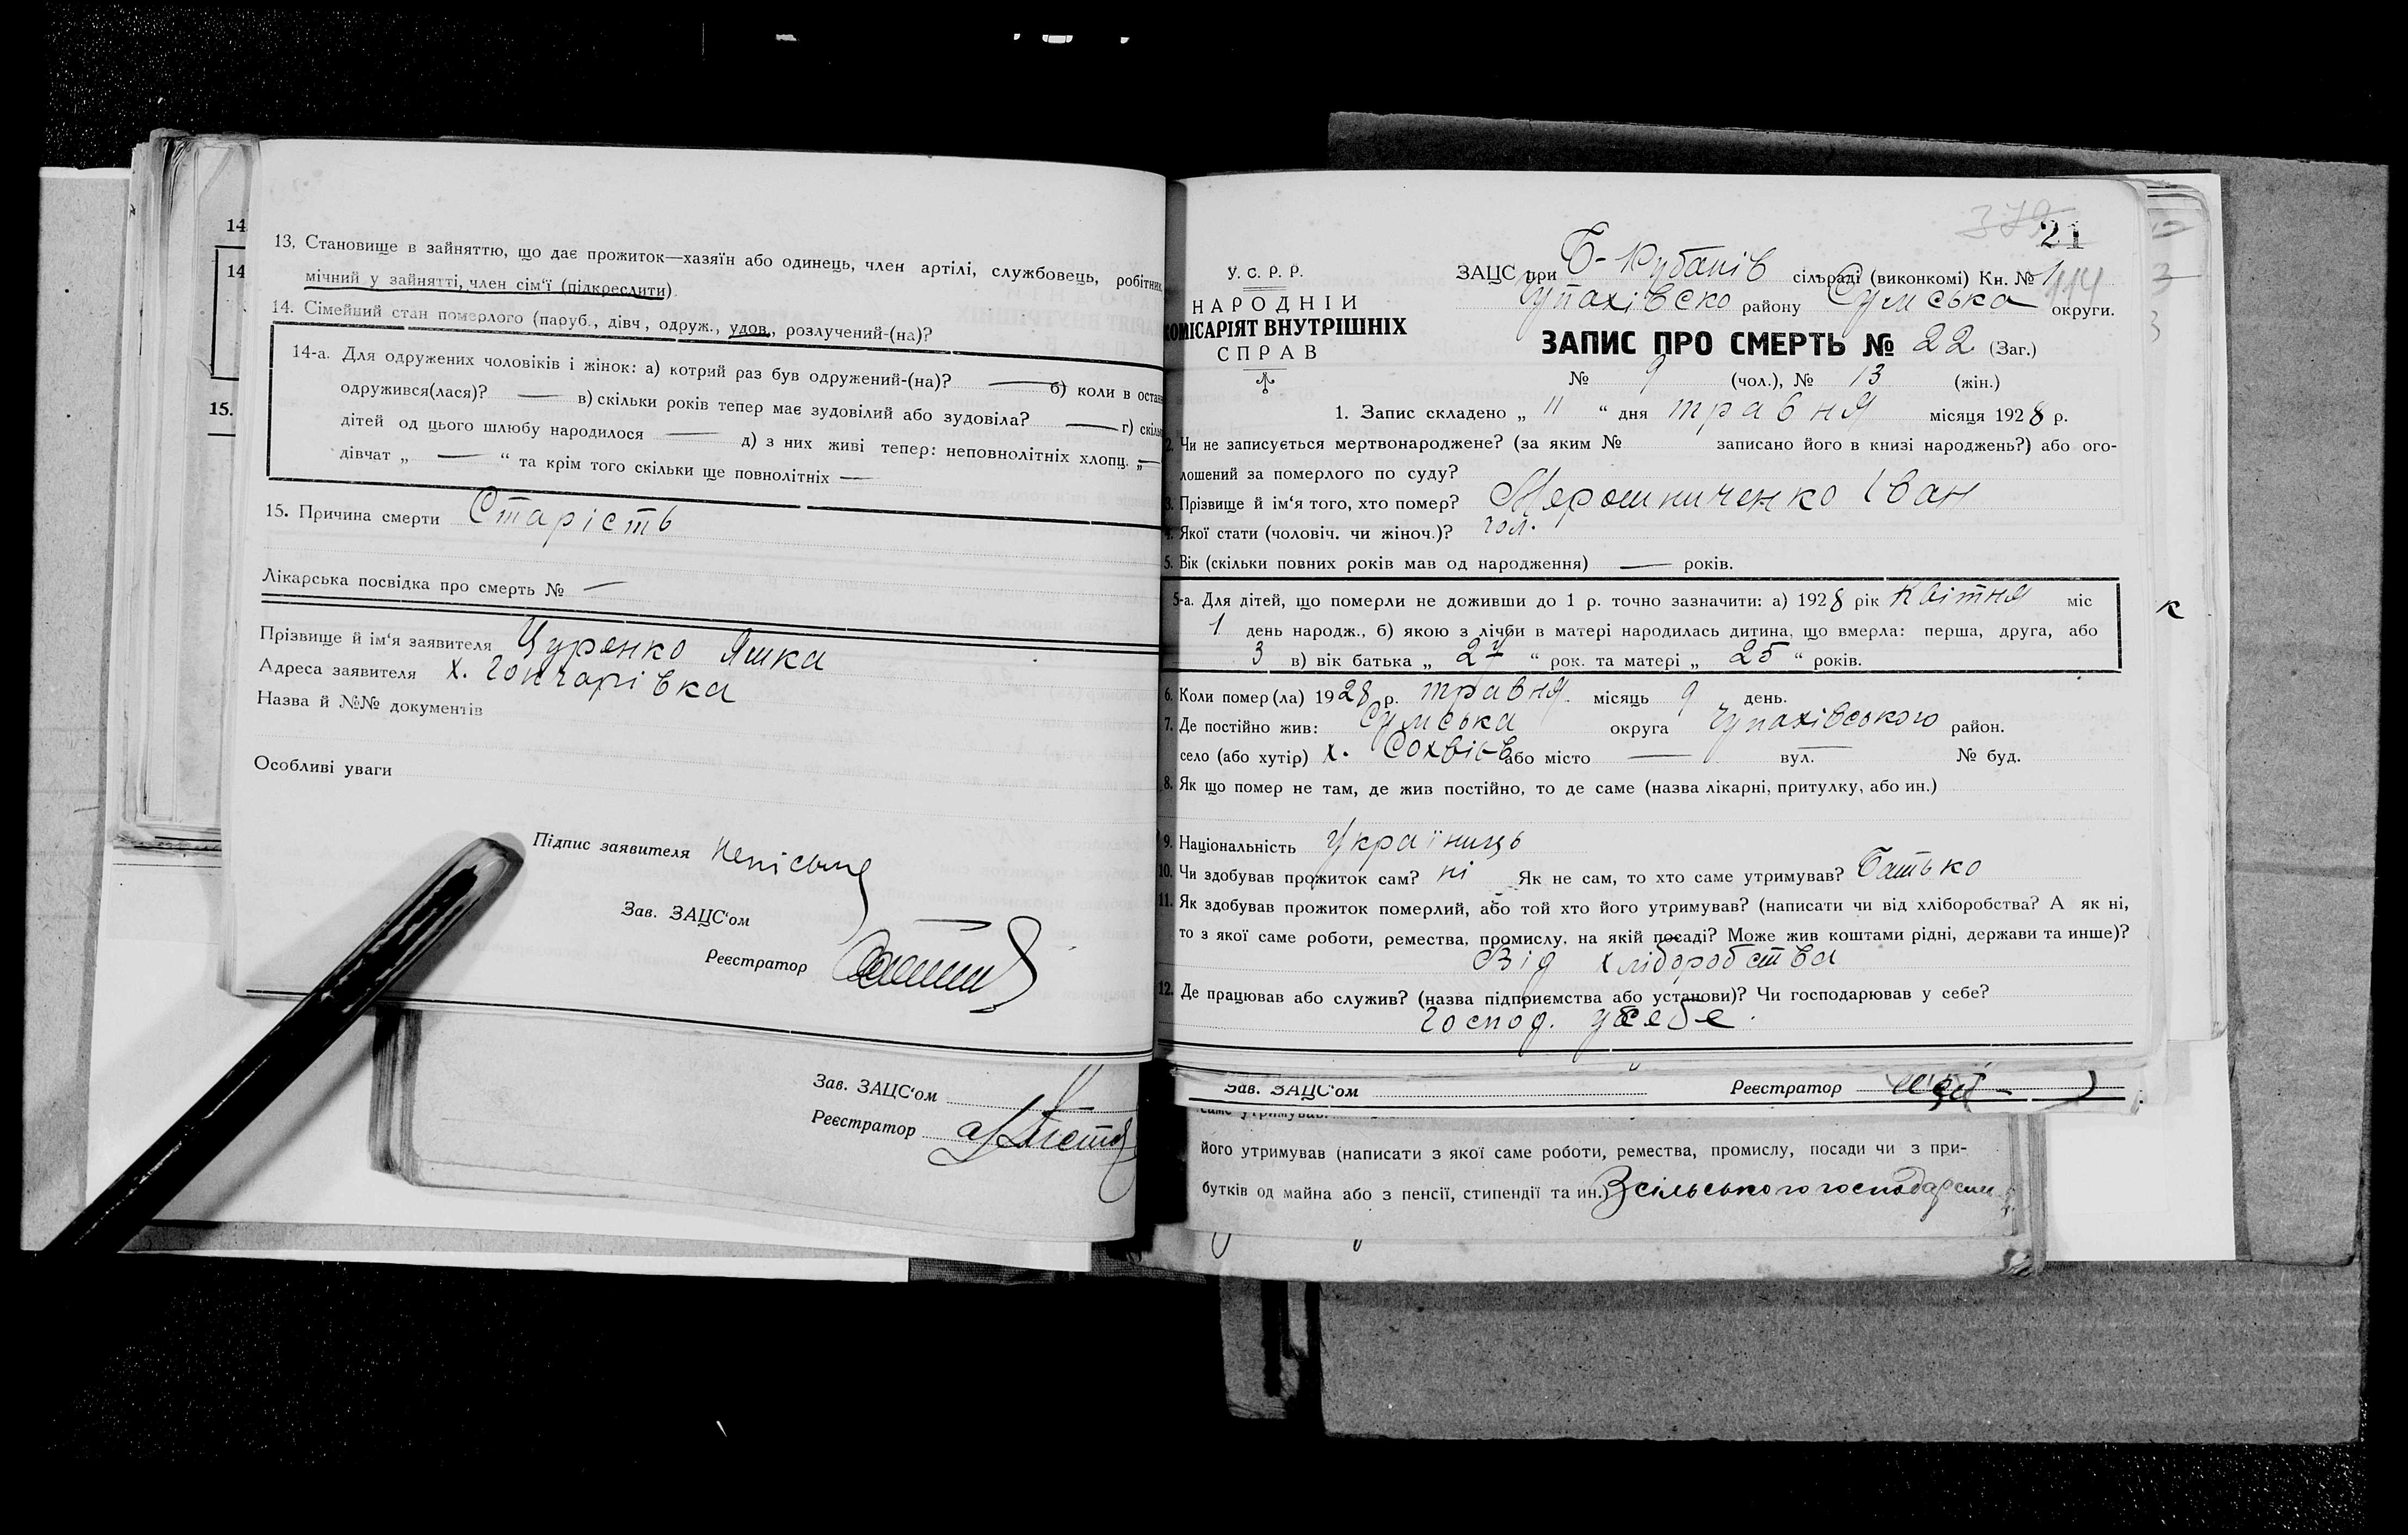 14
14
15.
13, Становище в зайняттю, що дає прожиток—хазяїн або одинець, член артілі, службовець, робітник,
мічний у зайнятті, член сім'ї (підкреслити).
14. Сімейний стан померлого (паруб., дівч, одруж., удов., розлучений-(на)?
14-а. Для одружених чоловіків і жінок: а) котрий раз був одружений-(на)? — б) коли в остан
одружився(лася)? — в) скільки років тепер має зудовілий або зудовіла? — г) скіль
дітей од цього шлюбу народилося — д) з них живі тепер: неповнолітніх хлопц. „—
дівчат „ — “ та крім того скільки ще повнолітніх —
15. Причина смерти Старість
Лікарська посвідка про смерть № —
Прізвище й ім'я заявителя Цуренко Яшка
Адреса заявителя х. Гончарівка
Назва й №№ документів
Особливі уваги
Підпис заявителя
Зав. ЗАЦС'ом
Реєстратор
Зав. ЗАЦС'ом
Реєстратор
379
21
У. С. Р. Р.
НАРОДНІЙ
КОМІСАРІЯТ ВНУТРІШНІХ
СПРАВ
ЗАЦС при Б-Кубанів сільраді (виконкомі) Кн. № 1
Чупахівско району Сумська округи.
ЗАПИС ПРО СМЕРТЬ № 22 (Заг.)
№ 9 (чол.), № 13 (жін.)
1. Запис складено „ 11 “ дня травня місяця 1928 р.
2. Чи не записується мертвонароджене? (за яким № записано його в книзі народжень?) або ого-
лошений за померлого по суду?
3. Прізвище й ім'я того, хто помер? Мерошниченко Іван
4. Якої стати (чоловіч. чи жіноч.)? чол.
5. Вік (скільки повних років мав од народження) — років.
5-а. Для дітей, що померли не доживши до 1 р. точно зазначити: а) 1928 рік Квітня міс
1 день народж., б) якою з лічби в матері народилась дитина, що вмерла: перша, друга, або
3 в) вік батька „ 27 “ рок. та матері „ 25 “ років.
6. Коли помер (ла) 1928 р. травня місяць 9 день.
7. Де постійно жив: Сумська округа Чупахівського район.
село (або хутір) х. або місто — вул. — № буд.
8. Як що помер не там, де жив постійно, то де саме (назва лікарні, притулку, або ин.)
9. Національність Україниць
10. Чи здобував прожиток сам? ні Як не сам, то хто саме утримував? Батько
11. Як здобував прожиток померлий, або той хто його утримував? (написати чи від хліборобства? А як ні,
то з якої саме роботи, ремества, промислу, на якій посаді? Може жив коштами рідні, держави та инше)?
Від хліборобства
12. Де працював або служив? (назва підприємства або установи)? Чи господарював у себе?
Господ. у себе.
Зав. ЗАЦС'ом Реєстратор
саме утримував.
його утримував (написати з якої саме роботи, ремества, промислу, посади чи з при-
бутків од майна або з пенсії, стипендії та ин.) З сільського господарст